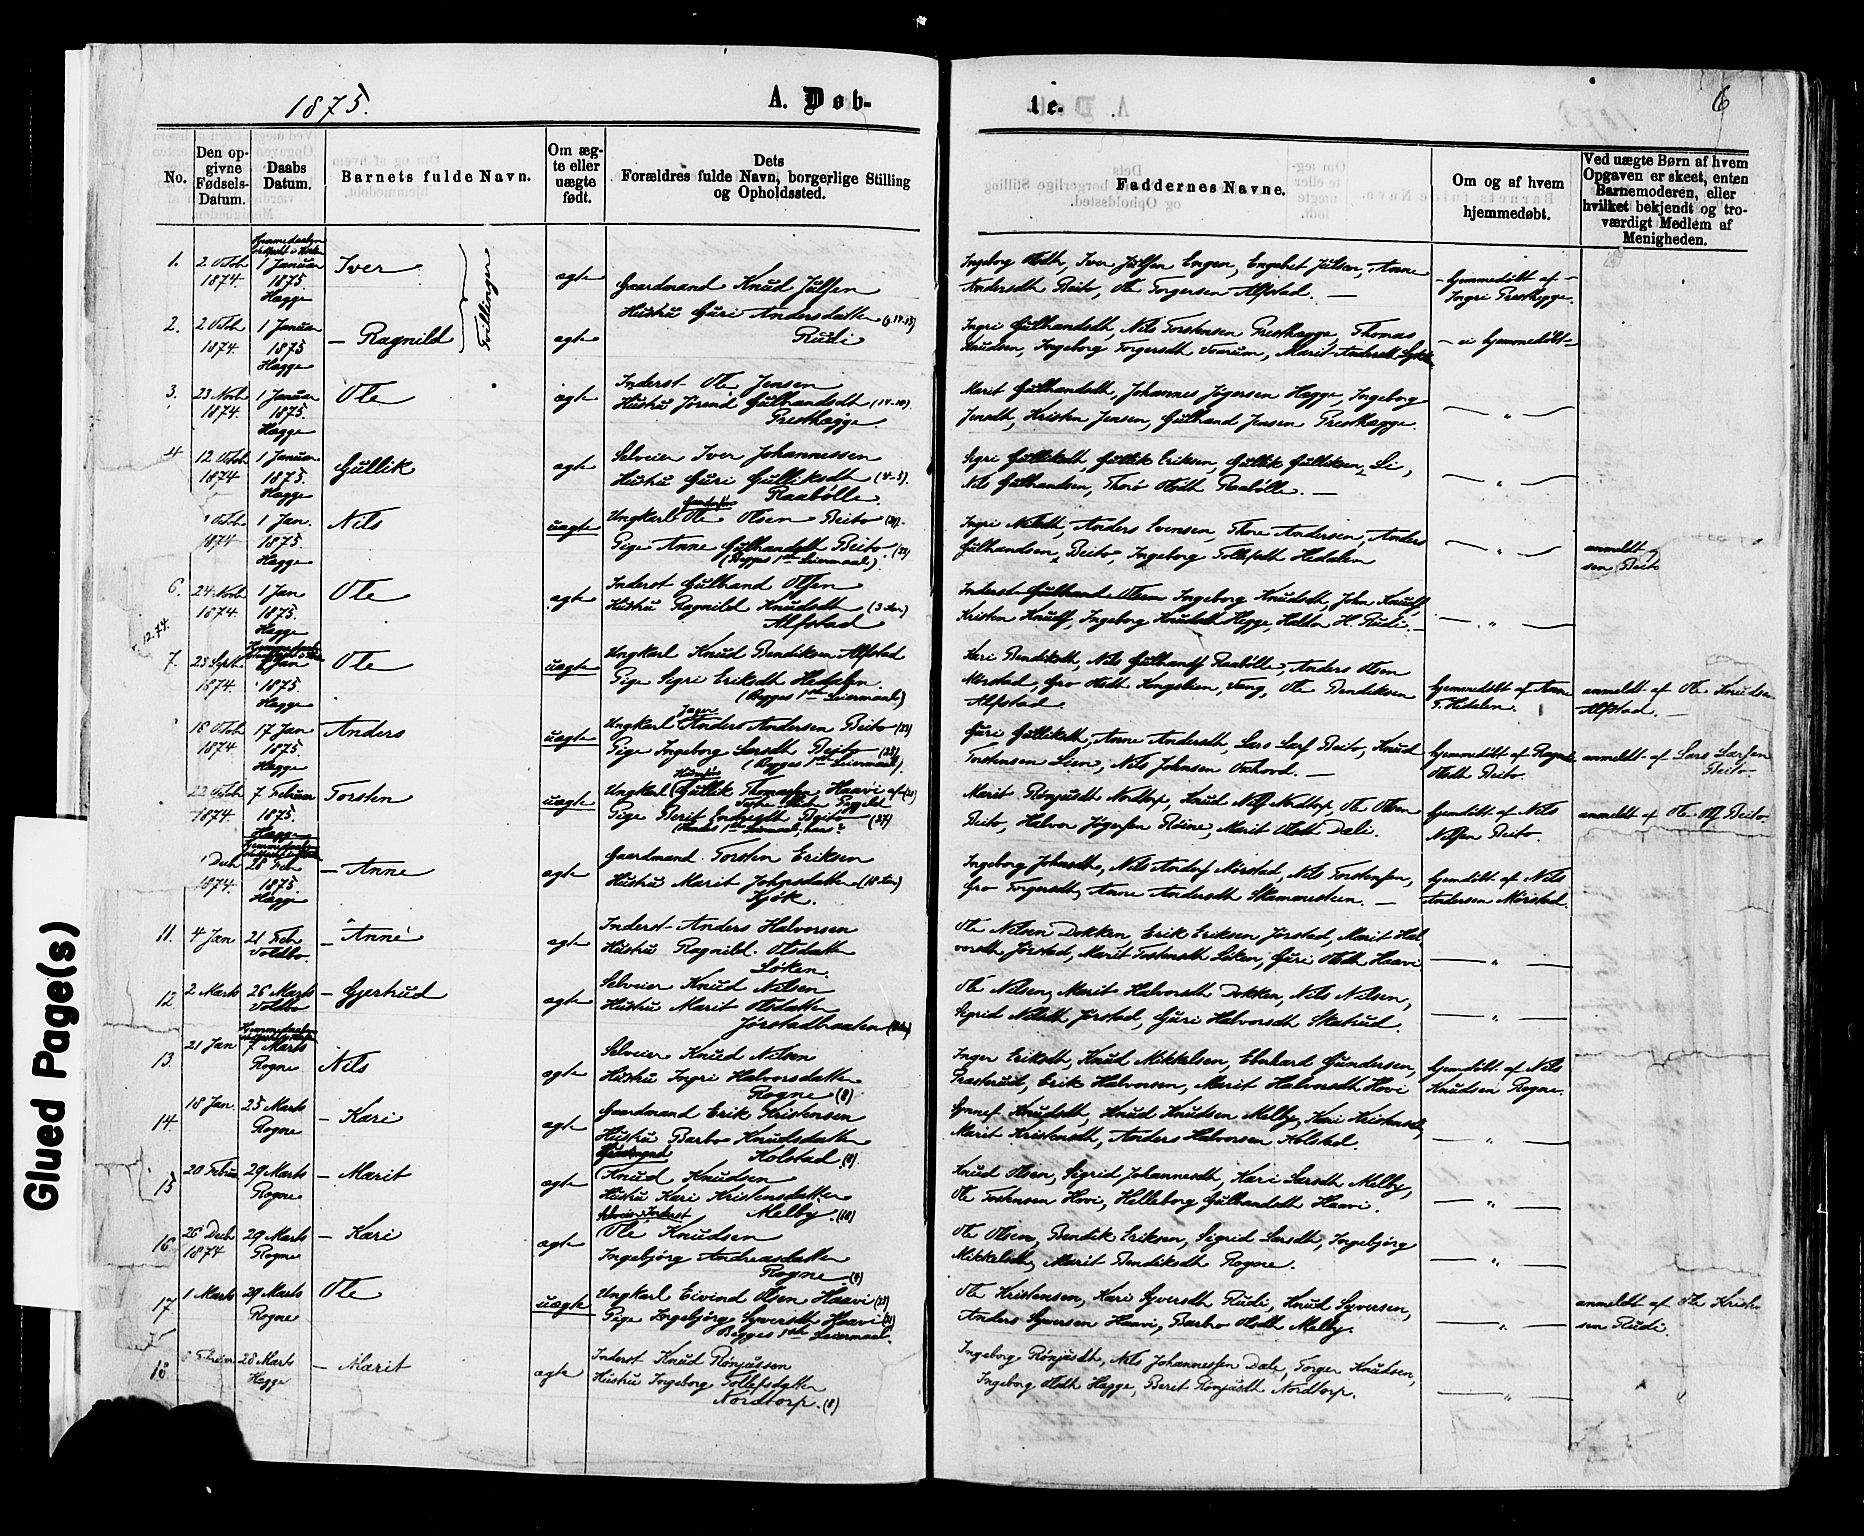 1875.
A. Døb-
te.
6
No.
Den op-
givne
Fødsels-
Datum.
Daabs
Datum.
Barnets fulde Navn.
Om æg-
te eller
uægte
født.
Dets
Forældres fulde Navn, borgerlige Stilling
og Opholdssted.
Faddernes Navne.
Om og af hvem
hjemmedøbt.
Ved uægte Børn af hvem
Opgaven er skeet, enten
Barnemoderen, eller
hvilket bekjendt og tro-
værdigt Medlem af
Menigheden.
1.
2 Octob
1874.
1 Januar
1875.
Hægge
Iver
Tvillinger
ægte
Gaardmand Knud Julsen
Ingeborg Olsdth, Iver Julsen Engen, Engebret Julsen, Anne
Andersdth Beito, Ole Torgersen Alfstad. —
hjemmedøbt af
Ingri Presthægge.
2.
2 Octob
1874.
1 Januar
1875
Hægge
— Ragnild
ægte
Hustru Guri Andersdatter
Rudi
Ingri Gulhandsdth, Nils Torstensen Presthægge, Thomas
Knudsen, Ingeborg Torgersdth, Marit Andersdth
— ei hjemmedøbt —
3.
23 Novb
1874.
1 Januar
1875.
Hægge
Ole
ægte
Inderst Ole Jensen
Hustru Jorend Gulhandsdth
Presthægge.
Marit Gulhandsdth, Johannes Jøgersen Hægge, Ingeborg
Jensdth, Kristen Jensen, Gulhand Jensen Presthægge.
4
12 Octob
1874
1 Januar
1875.
Hægge
Gullik
ægte
Selveier Iver Johannessen
Hustru Guri Gulliksdth
Raabølle.
Sigri Gulliksdth, Gullik Eriksen, Gullik Gulliksen Li,
Nils Gulhandsen, Thorø Olsdth Raabølle. —
Octob
1874
1 Jan.
1875.
Hægge
Nils
uægte
Ungkarl Ole Olsen Beito
Pige Anne Gulhandsdth Beito (22)
(Begges 1ste Leiermaal).
Ingri Nilsdth, Anders Evensen, Thore Andersen, Anders
Gulhandsen, Beito, Ingeborg Tollefsdth Hedalen
anmeldt
sen Beito
6.
24 Novb
1874
1 Jan
1875.
Hægge
Ole
ægte
Inderst Gulhand Olsen
Hustru Ragnild Knudsdth
Alfstad
Inderst Gulhand Olsen Ingeborg Knudsdth, John Knuds,
Kristen Knuds, Ingeborg Knudsdth Hegge, Haldor H. Rudi. —
12.74.
7.
23 Septb
1874
1 Jan
1875.
Hægge
Ole
uægte
Ungkarl Knud Bendiksen Alfstad
Pige Sigri Eriksdth Hedalen.
(Begges 1ste Leiermaal)
Kari Bendiksdth, Nils Gulhands Raabølle, Anders Olsen
Mørstad, Gro Olsdth Kongslien, Vang, Ole Bendiksen
Alfstad.
hjemmedøbt af Anne
T. Hedalen.
anmeldt af Ole Knudsen
Alfstad. —
18 Octob
1874
17 Jan
1875
Hægge
Anders
uægte
Ungkarl Anders Andersen Beito (22)
Pige Ingeborg Larsdth Beito (25)
(Begges 1ste Leiermaal).
Guri Gulliksdth, Anne Andersdth, Lars Lars Beito, Knud
Torstensen Lien, Nils Johnsen Oxhovd. —
hjemmedøbt af Ragne
Olsdth Beito.
anmeldt af Lars Larsen
Beito
22 Octob
1874.
7 Februar
1875.
Hægge
Torsten
uægte
Ungkarl Gullik Thomassen Haavi
Pige Berit Endresdth Beito (37)
Marit Rønjusdth Nordtorp, Knud Nils Nordtorp, Ole Olsen
Beito, Halvor Jøgersen Røine, Marit Olsdth Dale.
hjemdøbt af Nils
Nilsen Beito.
anmeldt af Ole Ols Beito
Decb
1874.
28 Feb
1875
Hægge
— Anne
ægte
Gaardmand Torsten Eriksen
Hustru Marit Johnsdatter
Kjøk.
Ingeborg Johnsdth, Nils Anders Mørstad, Nils Torstensen,
Gro Torgersdth, Anne Andersdth Skammestein. —
hjemdøbt af Nils
Andersen Mørstad.
11.
4 Jan
21 Feb
Voldbo.
— Anne
ægte
Inderst Anders Halvorsen
Hustru Ragnild Olsdatter
Løken.
Ole Nilsen Dokken, Erik Eriksen Jørstad, Marit Hal-
vorsdth Jørstad, Marit Torstensdth Løken, Guri Olsdth Haavi
12
2 Marts
26 Marts
Voldbo
— Gjertrud
ægte
Selveier Knud Nilsen
Hustru Marit Olsdatter
Jørstadbraaten
Ole Nilsen, Marit Halvorsdth Dokken, Nils Nilsen,
Sigrid Nilsdth Jørstad, Guri Halvorsdth Skatrud.
13.
21 Jan
7 Marts
Rogne
Nils
ægte
Selveier Knud Nilsen
Hustru Ingri Halvorsdatter
Rogne (8)
Inger Eriksdth, Knud Mikkelsen, Eberhard Gundersen,
Prasterud, Erik Halvorsen, Marit Halvorsdth Hovi
hjemdøbt af Nils
Knudsen Rogne.
14
18 Jan.
25 Marts
Rogne
— Kari
ægte
Gaardmand Erik Kristensen
Hustru Barbo Knudsdatter
Kolstad (8)
Synnef Knudsdth, Knud Knudsen Melby, Kari Kristensdth,
Marit Kristensdth, Anders Halvorsen Kolstad.
15
20 Februar
29 Marts
Rogne
— Marit
ægte
Gaardmand
Knud Knudsen
Hustru Kari Kristensdatter
Melby. (10)
Knud Olsen, Sigrid Johannesdth, Kari Larsdth Melby,
Ole Torstensen Hovi, Helleborg Gulhandsdth Haavi.
16
26 Decb
1874
29 Marts
Rogne
— Kari
ægte
Selveier Inderst
Ole Knudsen
Ingebjørg Andreasdatter
Rogne (8)
Ole Olsen, Bendik Eriksen, Sigrid Larsdth, Ingebjørg
Mikkelsdth, Marit Bendiksdth Rogne.
17
1 Marts
29 Marts
Rogne
Ole
uægte
Ungkarl Eivind Olsen Haavi
Pige Ingebjørg Syversdth Haavi
Begges 1ste Leiermaal.
Ole Kristensen, Kari Syversdth Rudi, Knud Syversen,
Anders Syversen Haavi, Barbro Olsdth Melby.
anmeldt af Ole Kristen
sen Rudi.
18
Februar
28 Marts
Hægge
— Marit
ægte
Inderst Knud Rønjussen
Hustru Ingeborg Tollefsdatter
Nordtorp. (8)
Ingeborg Rønjusdth, Nils Johannessen Dale, Torger Knudsen,
Ingeborg Olsdth Hægge, Berit Rønjusdth Nordtorp.
Glued Page(s)